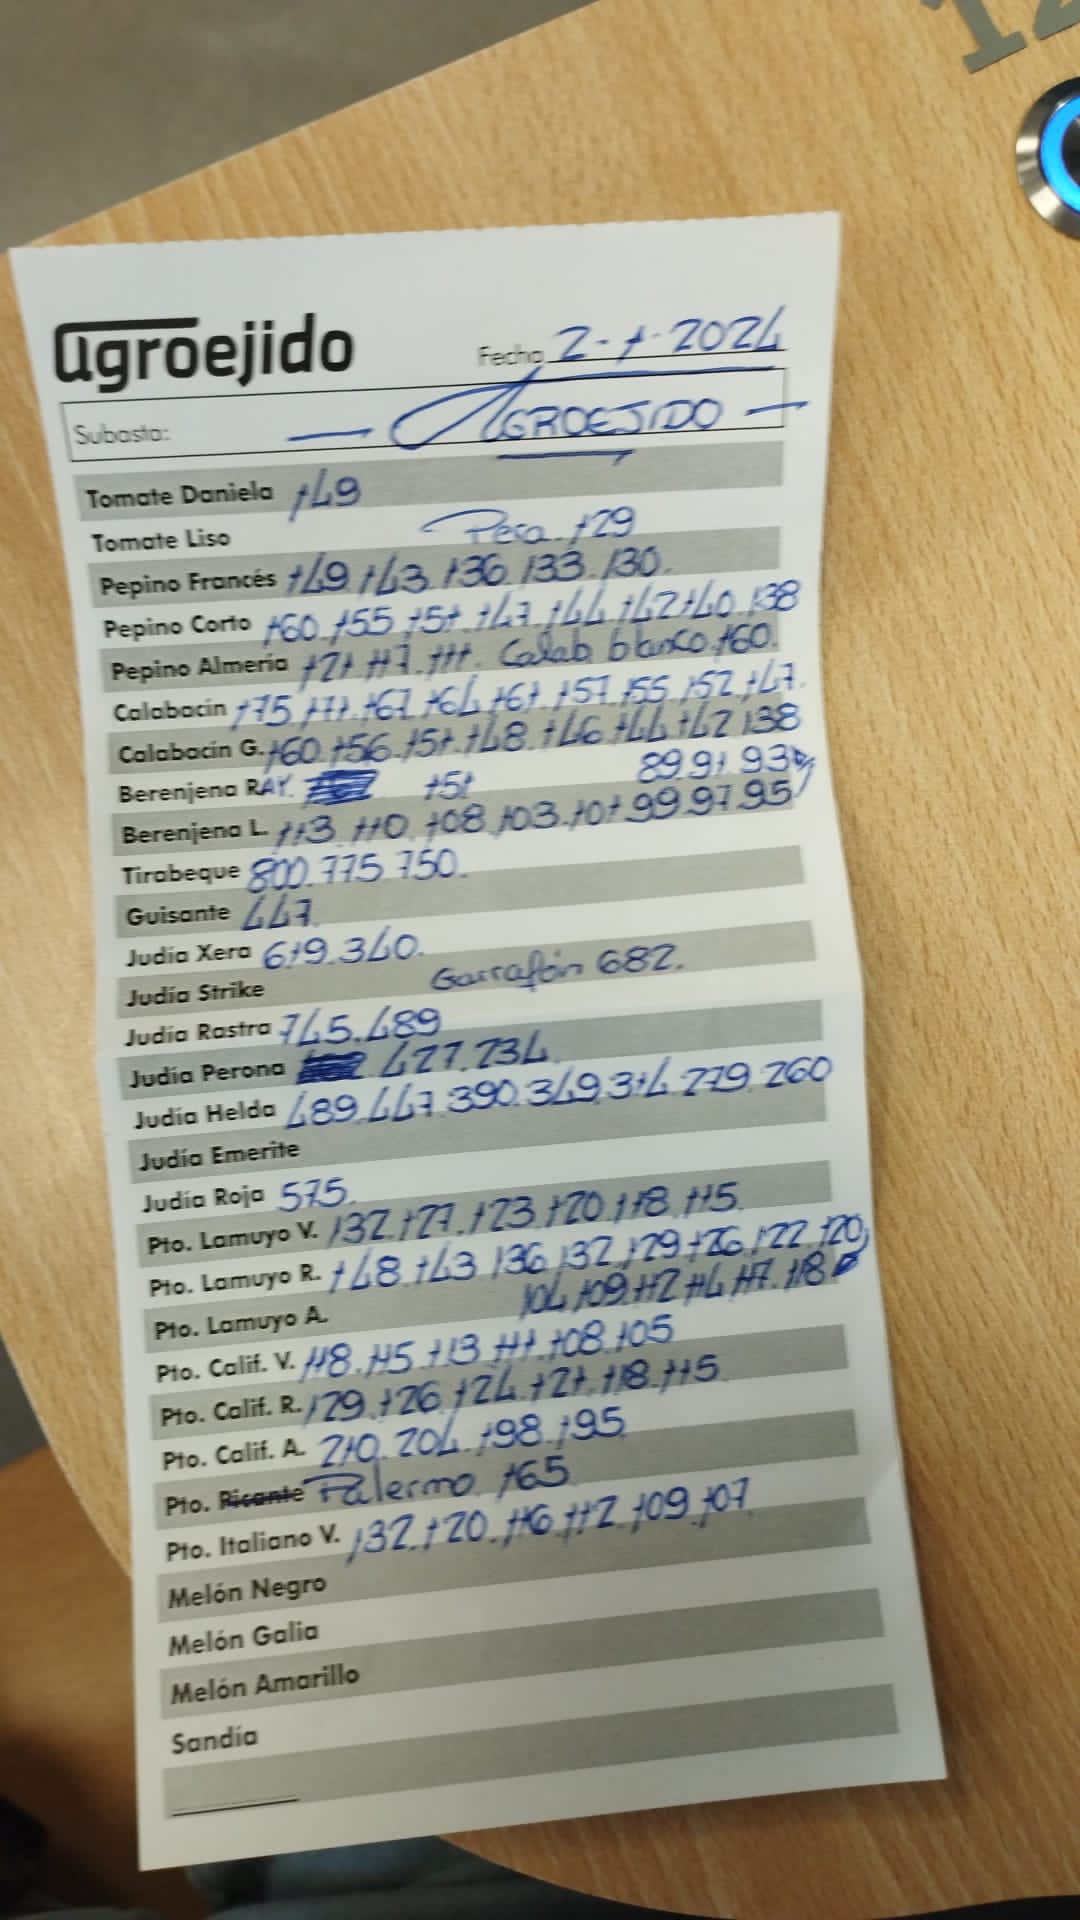 12
agroejido
Fecha 2-1-2024
Subasta: AGROEJIDO
Tomate Daniela 149
Tomate Liso Pera 129
Pepino Francés 149 143 136 133 130.
Pepino Corto 160 155 151 147 144 142 140 138
Pepino Almería 121 117 111. Calab blanco 160.
Calabacín 175 171 167 164 161 157 155 152 147.
Calabacín G. 160 156 151 148 146 144 142 138
Berenjena RAY. 151 89 91 93
Berenjena L. 113 110 108 103 101 99 97 95
Tirabeque 800 775 750.
Guisante 447
Judía Xera 619.340.
Judía Strike Garrafón 682.
Judía Rastra 745.489
Judía Perona 427.234
Judía Helda 489 447 390 349 314 279 260
Judía Emerite
Judía Roja 575.
Pto. Lamuyo V. 132 127 123 120 118 115
Pto. Lamuyo R. 148 143 136 132 129 126 122 120
Pto. Lamuyo A. 104 109 112 114 117 118
Pto. Calif. V. 118 115 113 111 108 105
Pto. Calif. R. 129 126 124 121 118 115
Pto. Calif. A. 210 204 198 195
Pto. Picante Palermo 165
Pto. Italiano V. 132 120 116 112 109 107
Melón Negro
Melón Galia
Melón Amarillo
Sandía